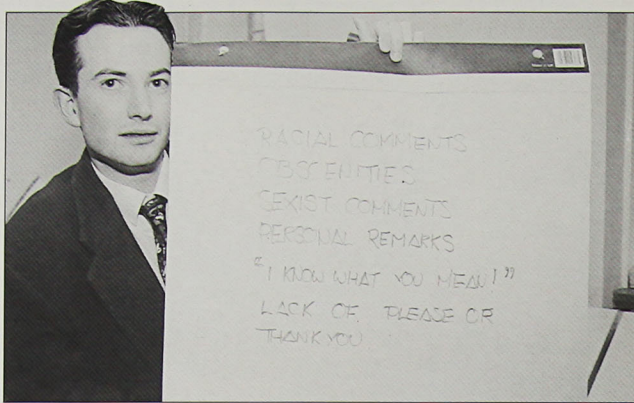 RACIAL COMMENTS
OBSCENITIES
SEXIST COMMENTS
PERSONAL REMARKS
"I KNOW WHAT YOU MEAN!"
LACK OF. PLEASE OR
THANKYOU